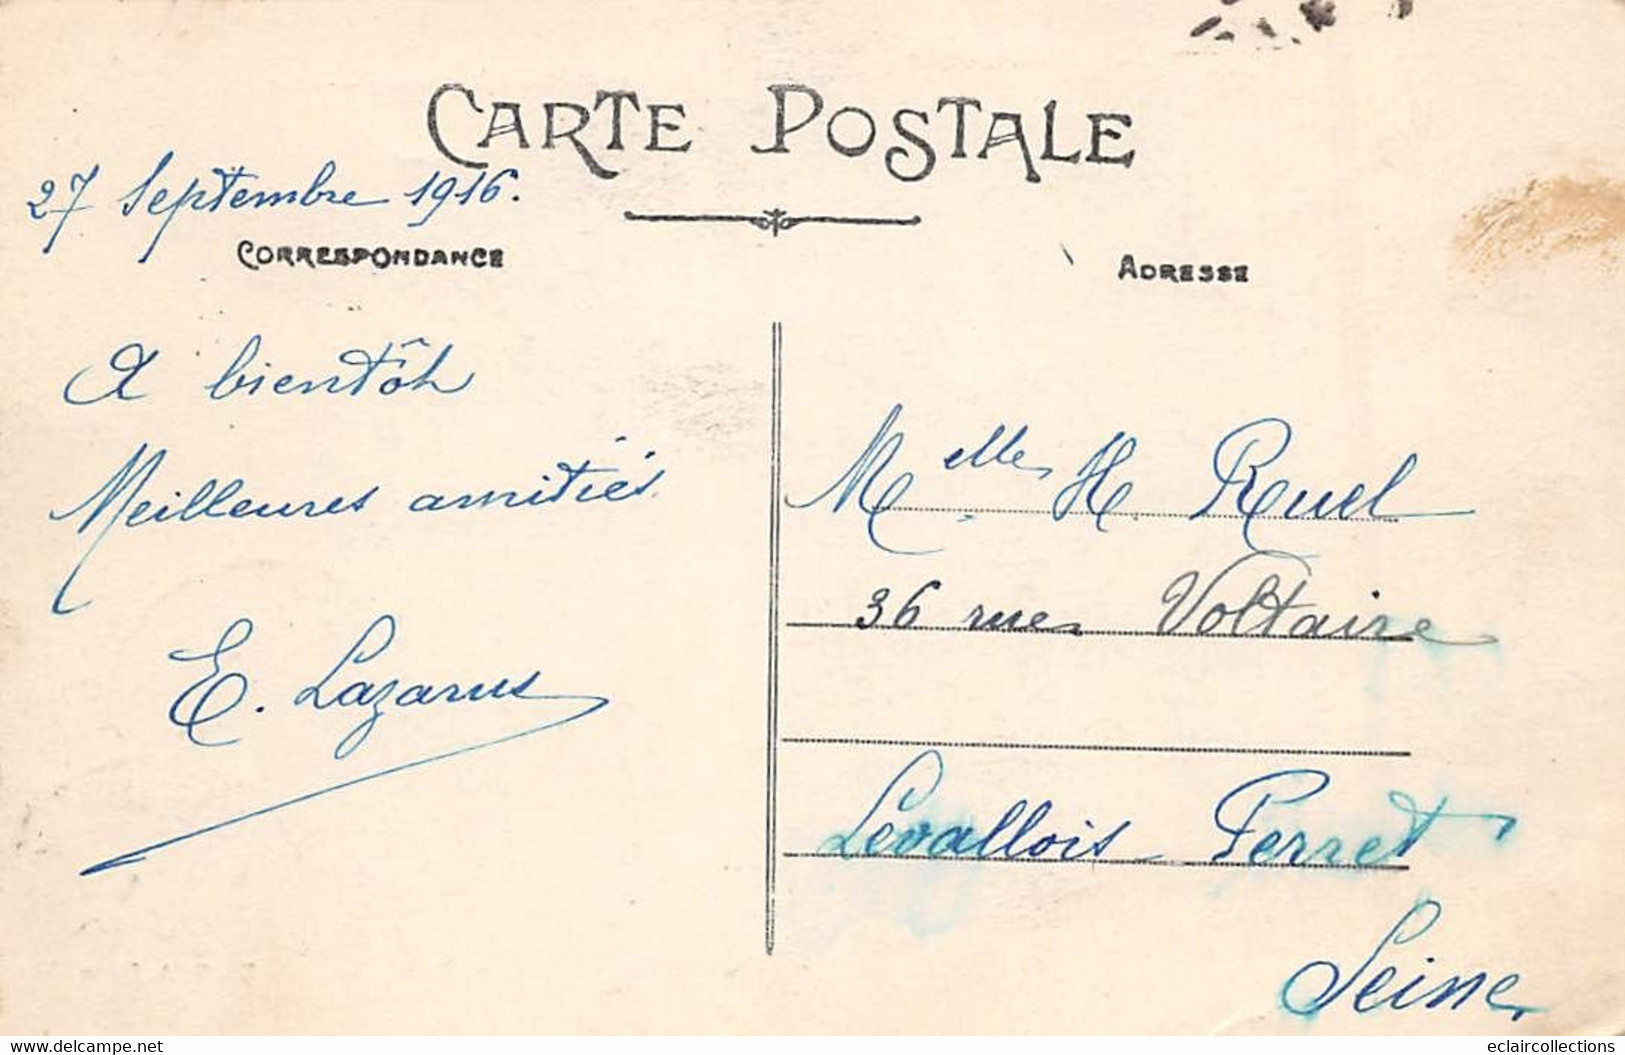 CARTE POSTALE
27 Septembre 1916.
CORRESPONDANCE
ADRESSE
A bientôt
Meilleures amitiés
E. Lazarus
Melle H. Ruel
36 rue Voltaire
Levallois Perret
Seine
www.delcampe.net
eclaircollections